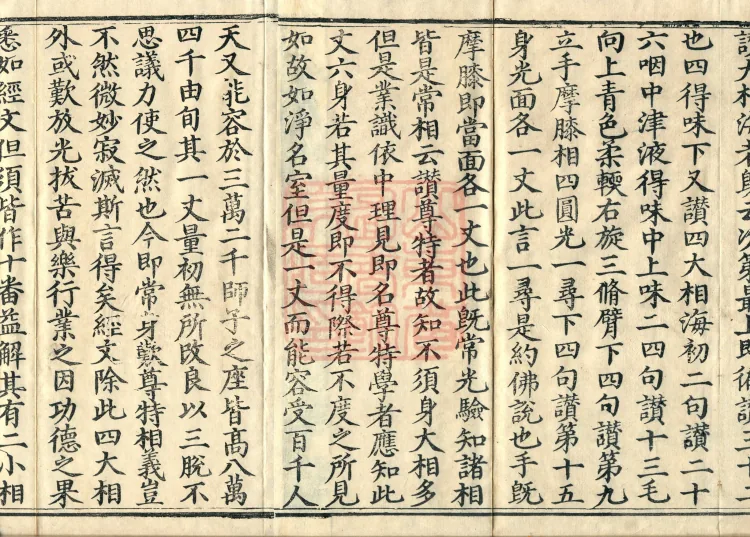 也四得味下又讚四大相海初二句讚二十
六咽中津液得味中上味二四句讚十三毛
向上青色柔輭右旋三脩臂下四句讚第九
立手摩膝相四圓光一尋下四句讚第十五
身光面各一丈此言一尋是約佛說也手旣
摩膝即當面各一丈也此旣常光驗知諸相
皆是常相云讚尊特者故知不須身大相多
但是業識依中理見即名尊特學者應知此
丈六身若其量度即不得際若不度之所見
如故如淨名室但是一丈而能容受百千人
天又能容於三萬二千師子之座皆高八萬
四千由旬其一丈量初無所改良以三脫不
思議力使之然也今即常身歎尊特相義豈
不然微妙寂滅斯言得矣經文除此四大相
外或歎放光拔苦與樂行業之因功德之果
悉如經文但須皆作十番益解其有二小相